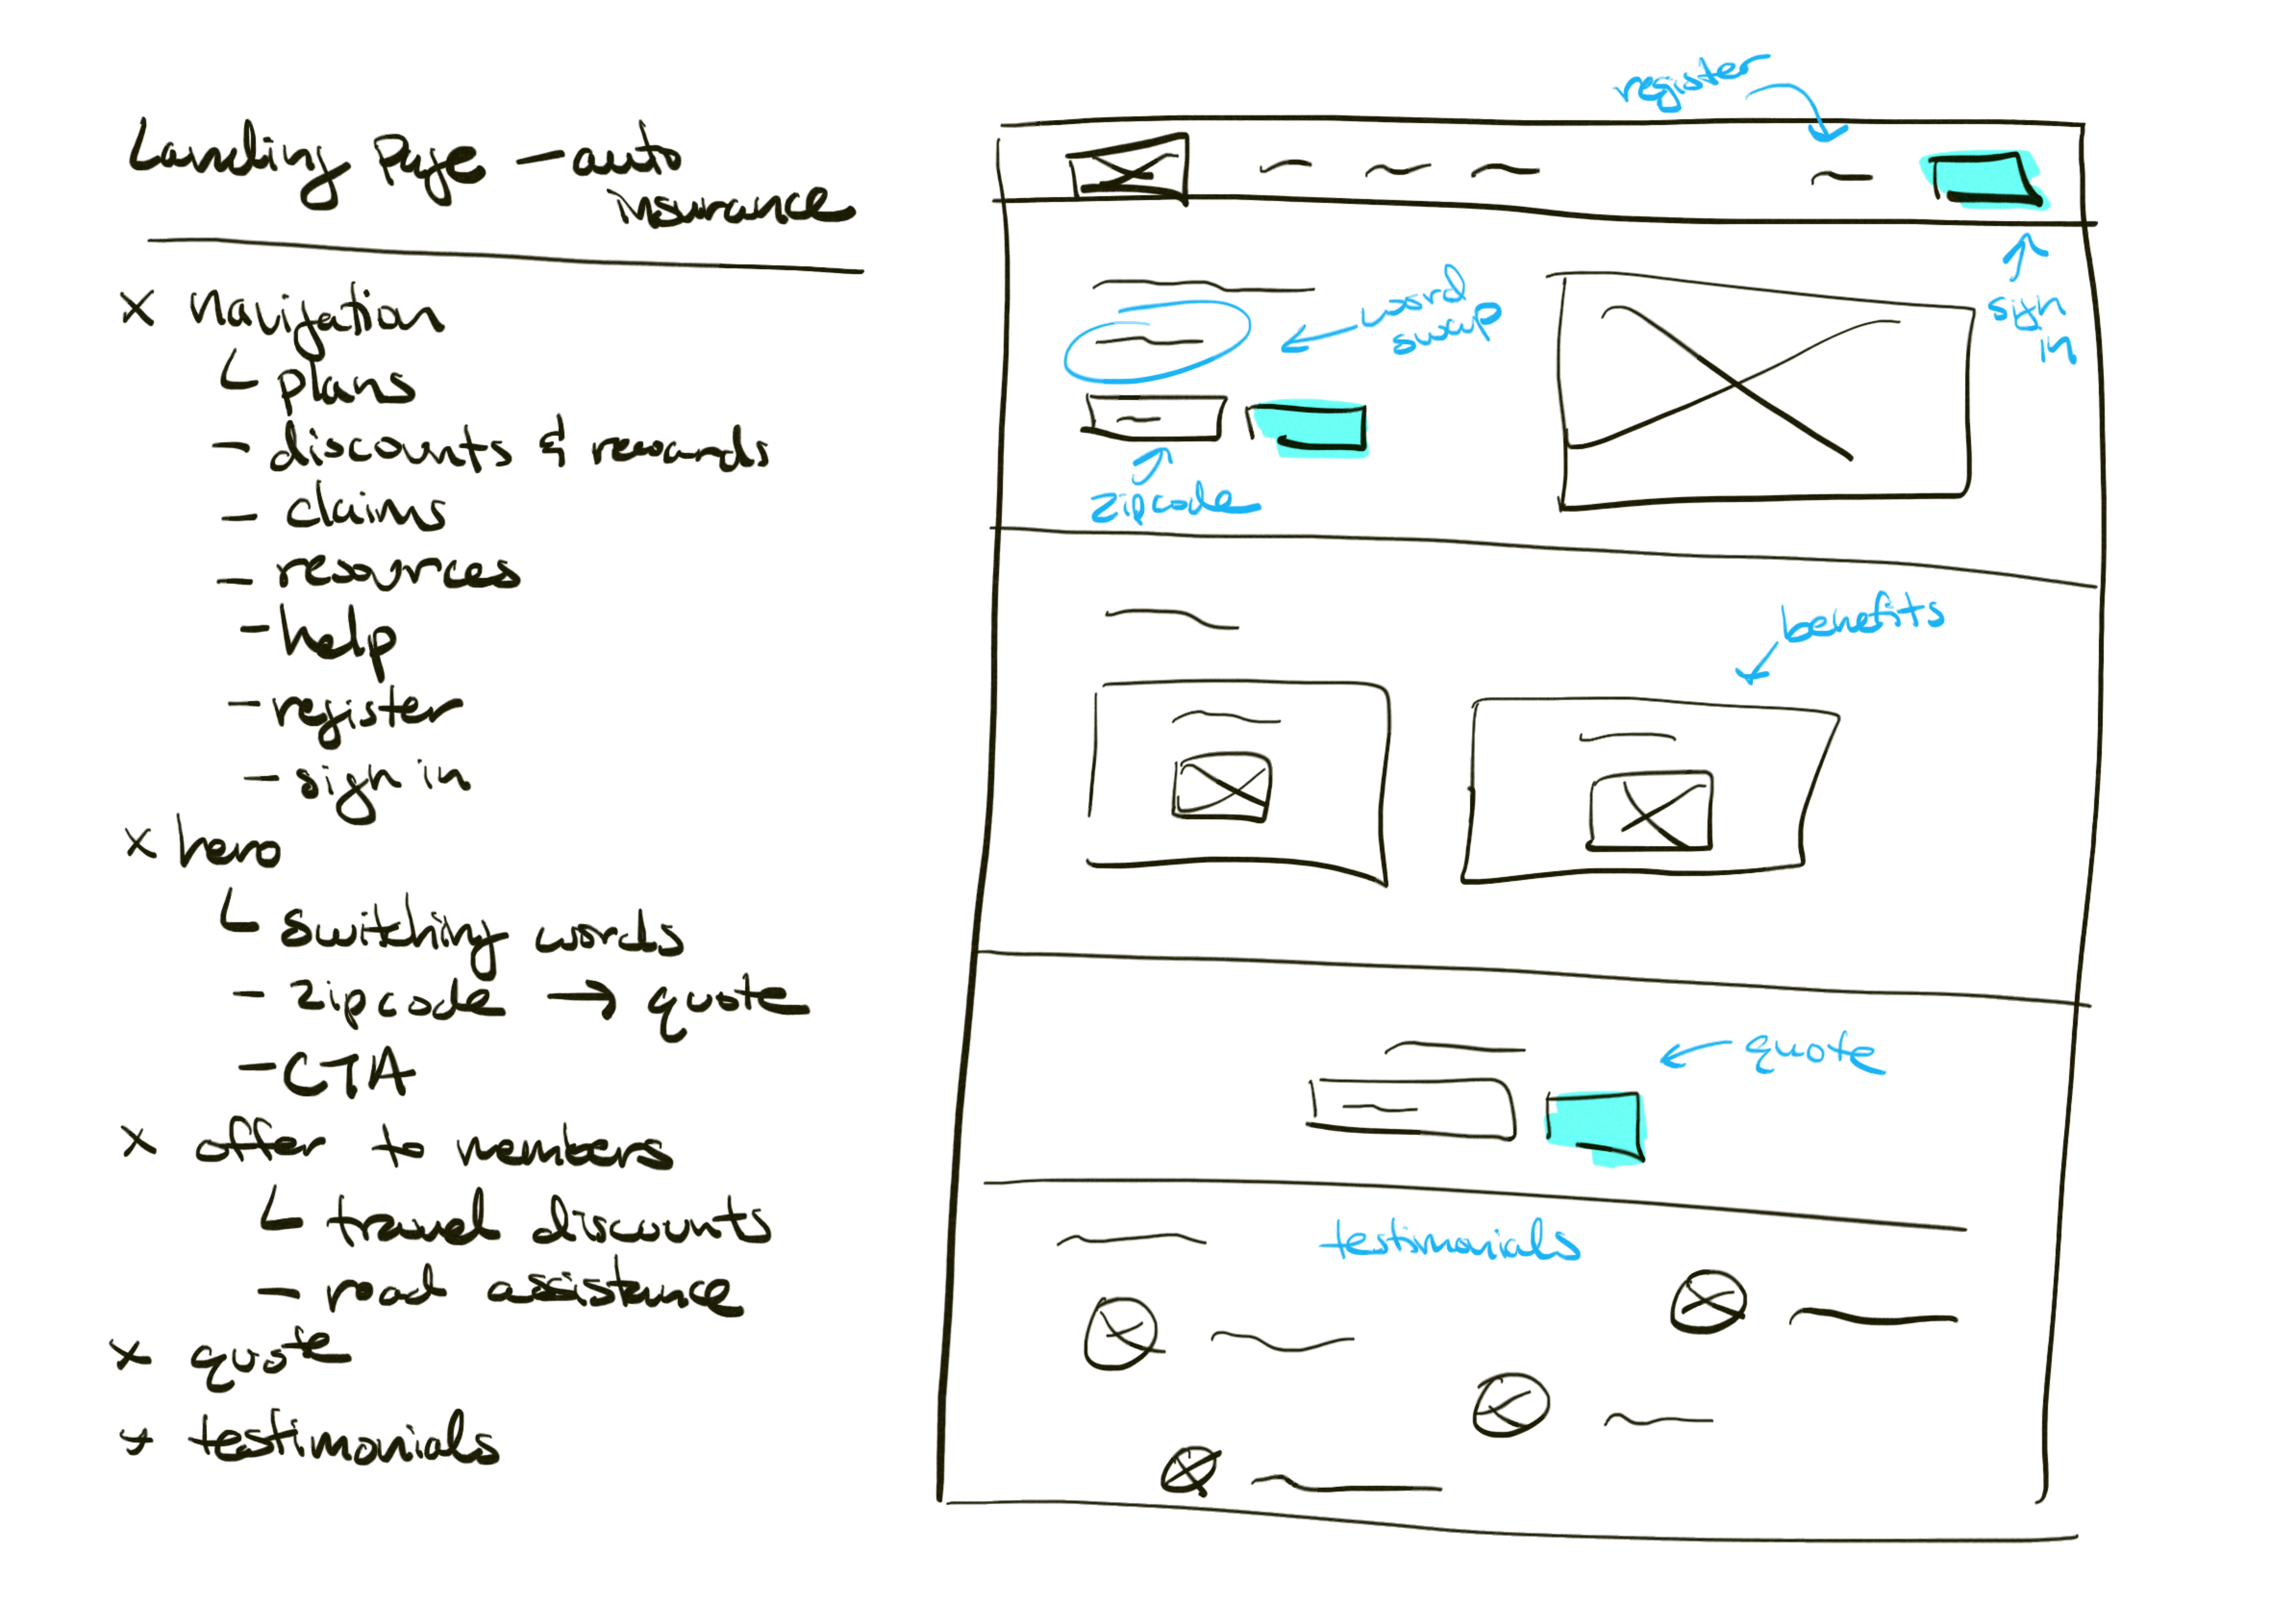 Landing Page — auto
insurance
x navigation
plans
- discounts & rewards
- claims
- resources
- help
- register
- sign in
x hero
switching words
- zipcode → quote
- CTA
x offer to members
travel discounts
- road assistance
x quote
x testimonials
register
sign
in
word
swap
zipcode
benefits
quote
testimonials